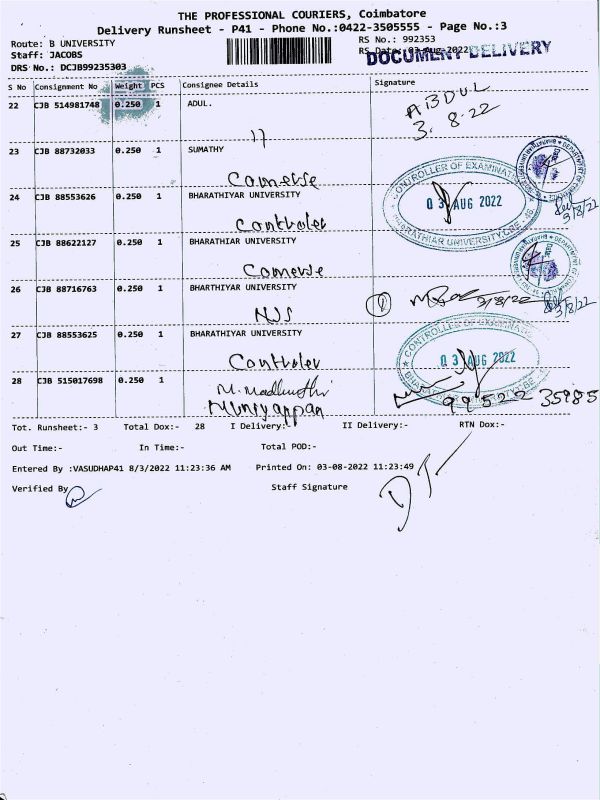 THE PROFESSIONAL COURIERS, Coimbatore
Delivery Runsheet - P41 - Phone No.:0422-3505555 - Page No.:3
Route: B UNIVERSITY
RS No.: 992353
Staff: JACOBS
RS Date: 03-Aug-2022
DOCUMENT DELIVERY
DRS No.: DCJB99235303
S No Consignment No Weight PCS Consignee Details Signature
22 CJB 514981748 0.250 1 ADUL.
ABDUL
3.8.22
11
23 CJB 88732033 0.250 1 SUMATHY
Comerse
24 CJB 88553626 0.250 1 BHARATHIYAR UNIVERSITY
CONTROLLER OF EXAMINATIONS
03 AUG 2022
BHARATHIAR UNIVERSITY, CBE - 46
3/8/22
Controler
25 CJB 88622127 0.250 1 BHARATHIAR UNIVERSITY
Comerse
26 CJB 88716763 0.250 1 BHARTHIYAR UNIVERSITY
1
3/8/22
3/8/22
NSS
27 CJB 88553625 0.250 1 BHARATHIYAR UNIVERSITY
CONTROLLER OF EXAMINATIONS
03 AUG 2022
Controler
28 CJB 515017698 0.250 1 M. Madhunthi
Muniyappan
99522 35985
Tot. Runsheet:- 3 Total Dox:- 28 I Delivery:- II Delivery:- RTN Dox:-
Out Time:- In Time:- Total POD:-
Entered By :VASUDHAP41 8/3/2022 11:23:36 AM Printed On: 03-08-2022 11:23:49
Verified By Staff Signature